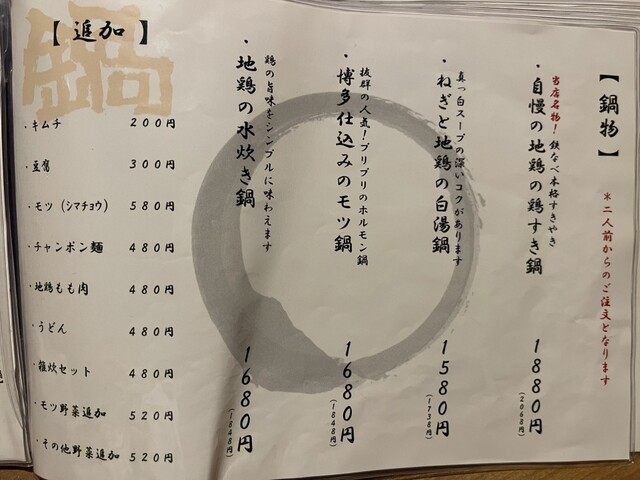 【鍋物】
＊二人前からのご注文となります
当店名物！鉄なべ本格すきやき
・自慢の地鶏の鶏すき鍋
1880円
(2068円)
真っ白スープの深いコクがあります
・ねぎと地鶏の白湯鍋
1580円
(1738円)
抜群の人気！プリプリのホルモン鍋
・博多仕込みのモツ鍋
1680円
(1848円)
鶏の旨味をシンプルに味わえます
・地鶏の水炊き鍋
1680円
(1848円)
鍋
【追加】
・キムチ 200円
・豆腐 300円
・モツ（シマチョウ） 580円
・チャンポン麺 480円
・地鶏もも肉 480円
・うどん 480円
・雑炊セット 480円
・モツ野菜追加 520円
・その他野菜追加 520円